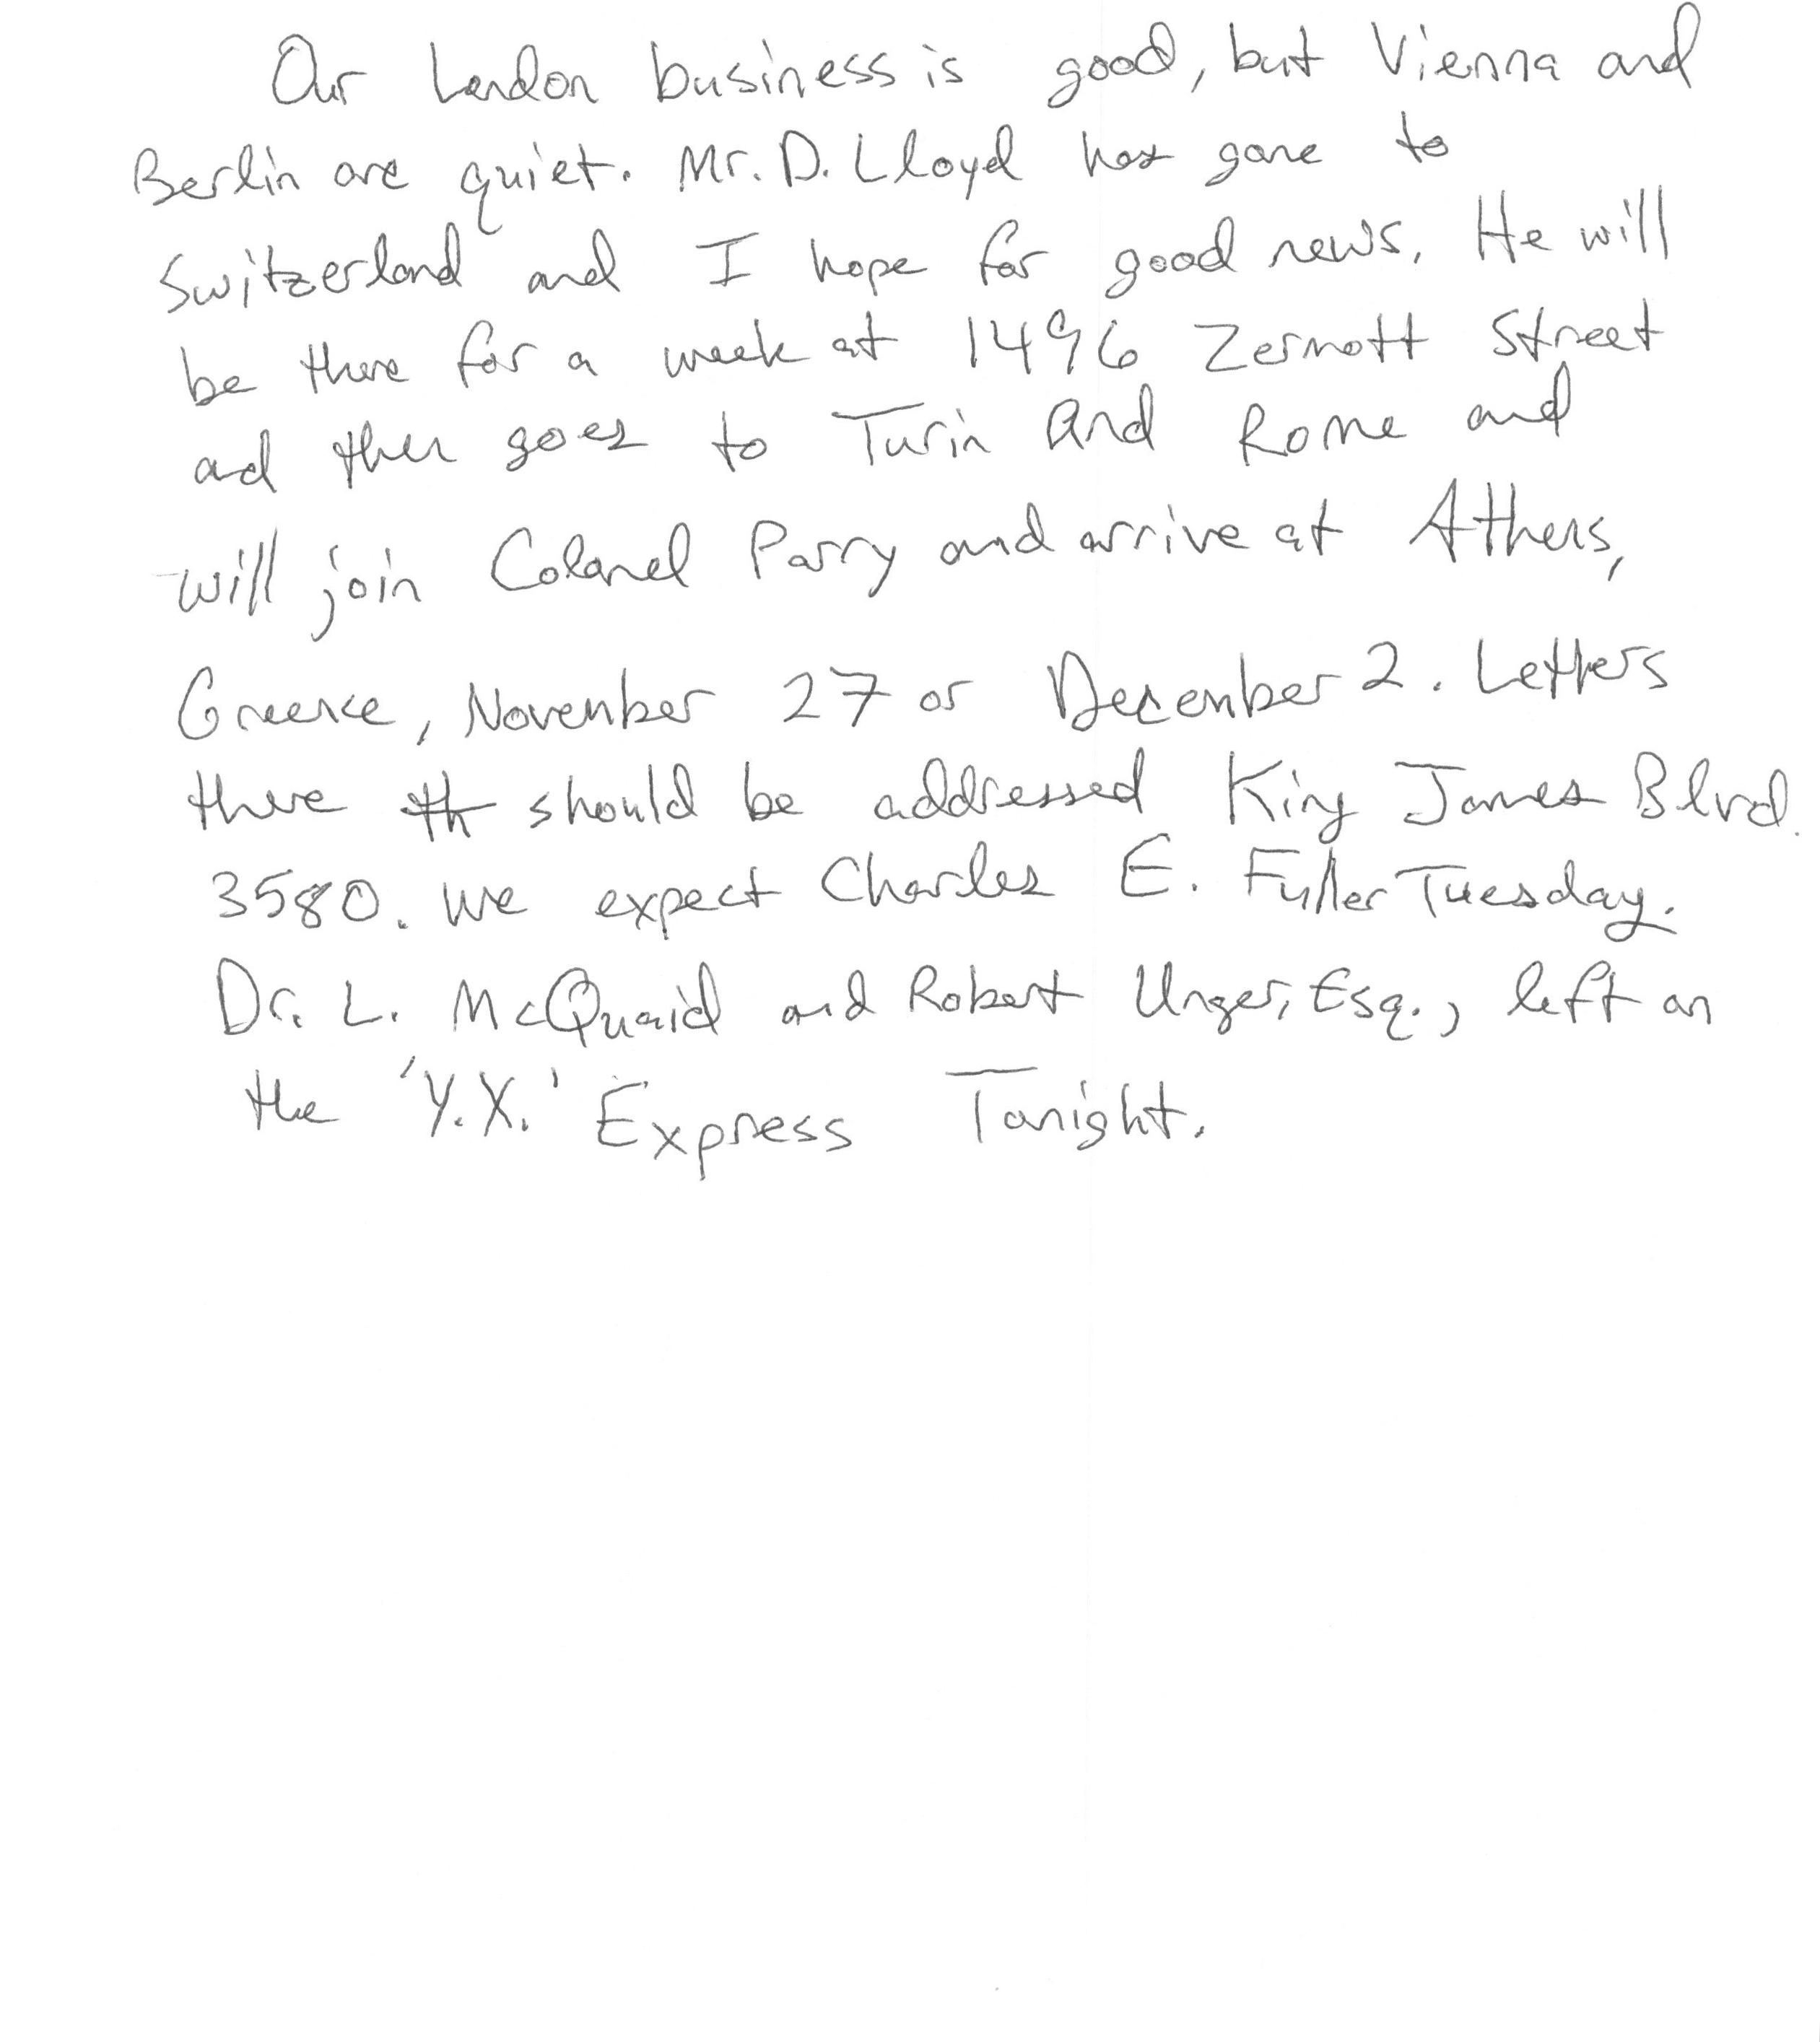 Our London business is good, but Vienna and
Berlin are quiet. Mr. D. Lloyd has gone to
Switzerland and I hope for good news. He will
be there for a week at 1496 Zermott Street
and then goes to Turin and Rome and
will join Colonel Parry and arrive at Athens,
Greece, November 27 or December 2. Letters
there th should be addressed King James Blvd.
3580. We expect Charles E. Fuller Tuesday.
Dr. L. McQuaid and Robert Unger, Esq., left on
the 'Y.X.' Express Tonight.